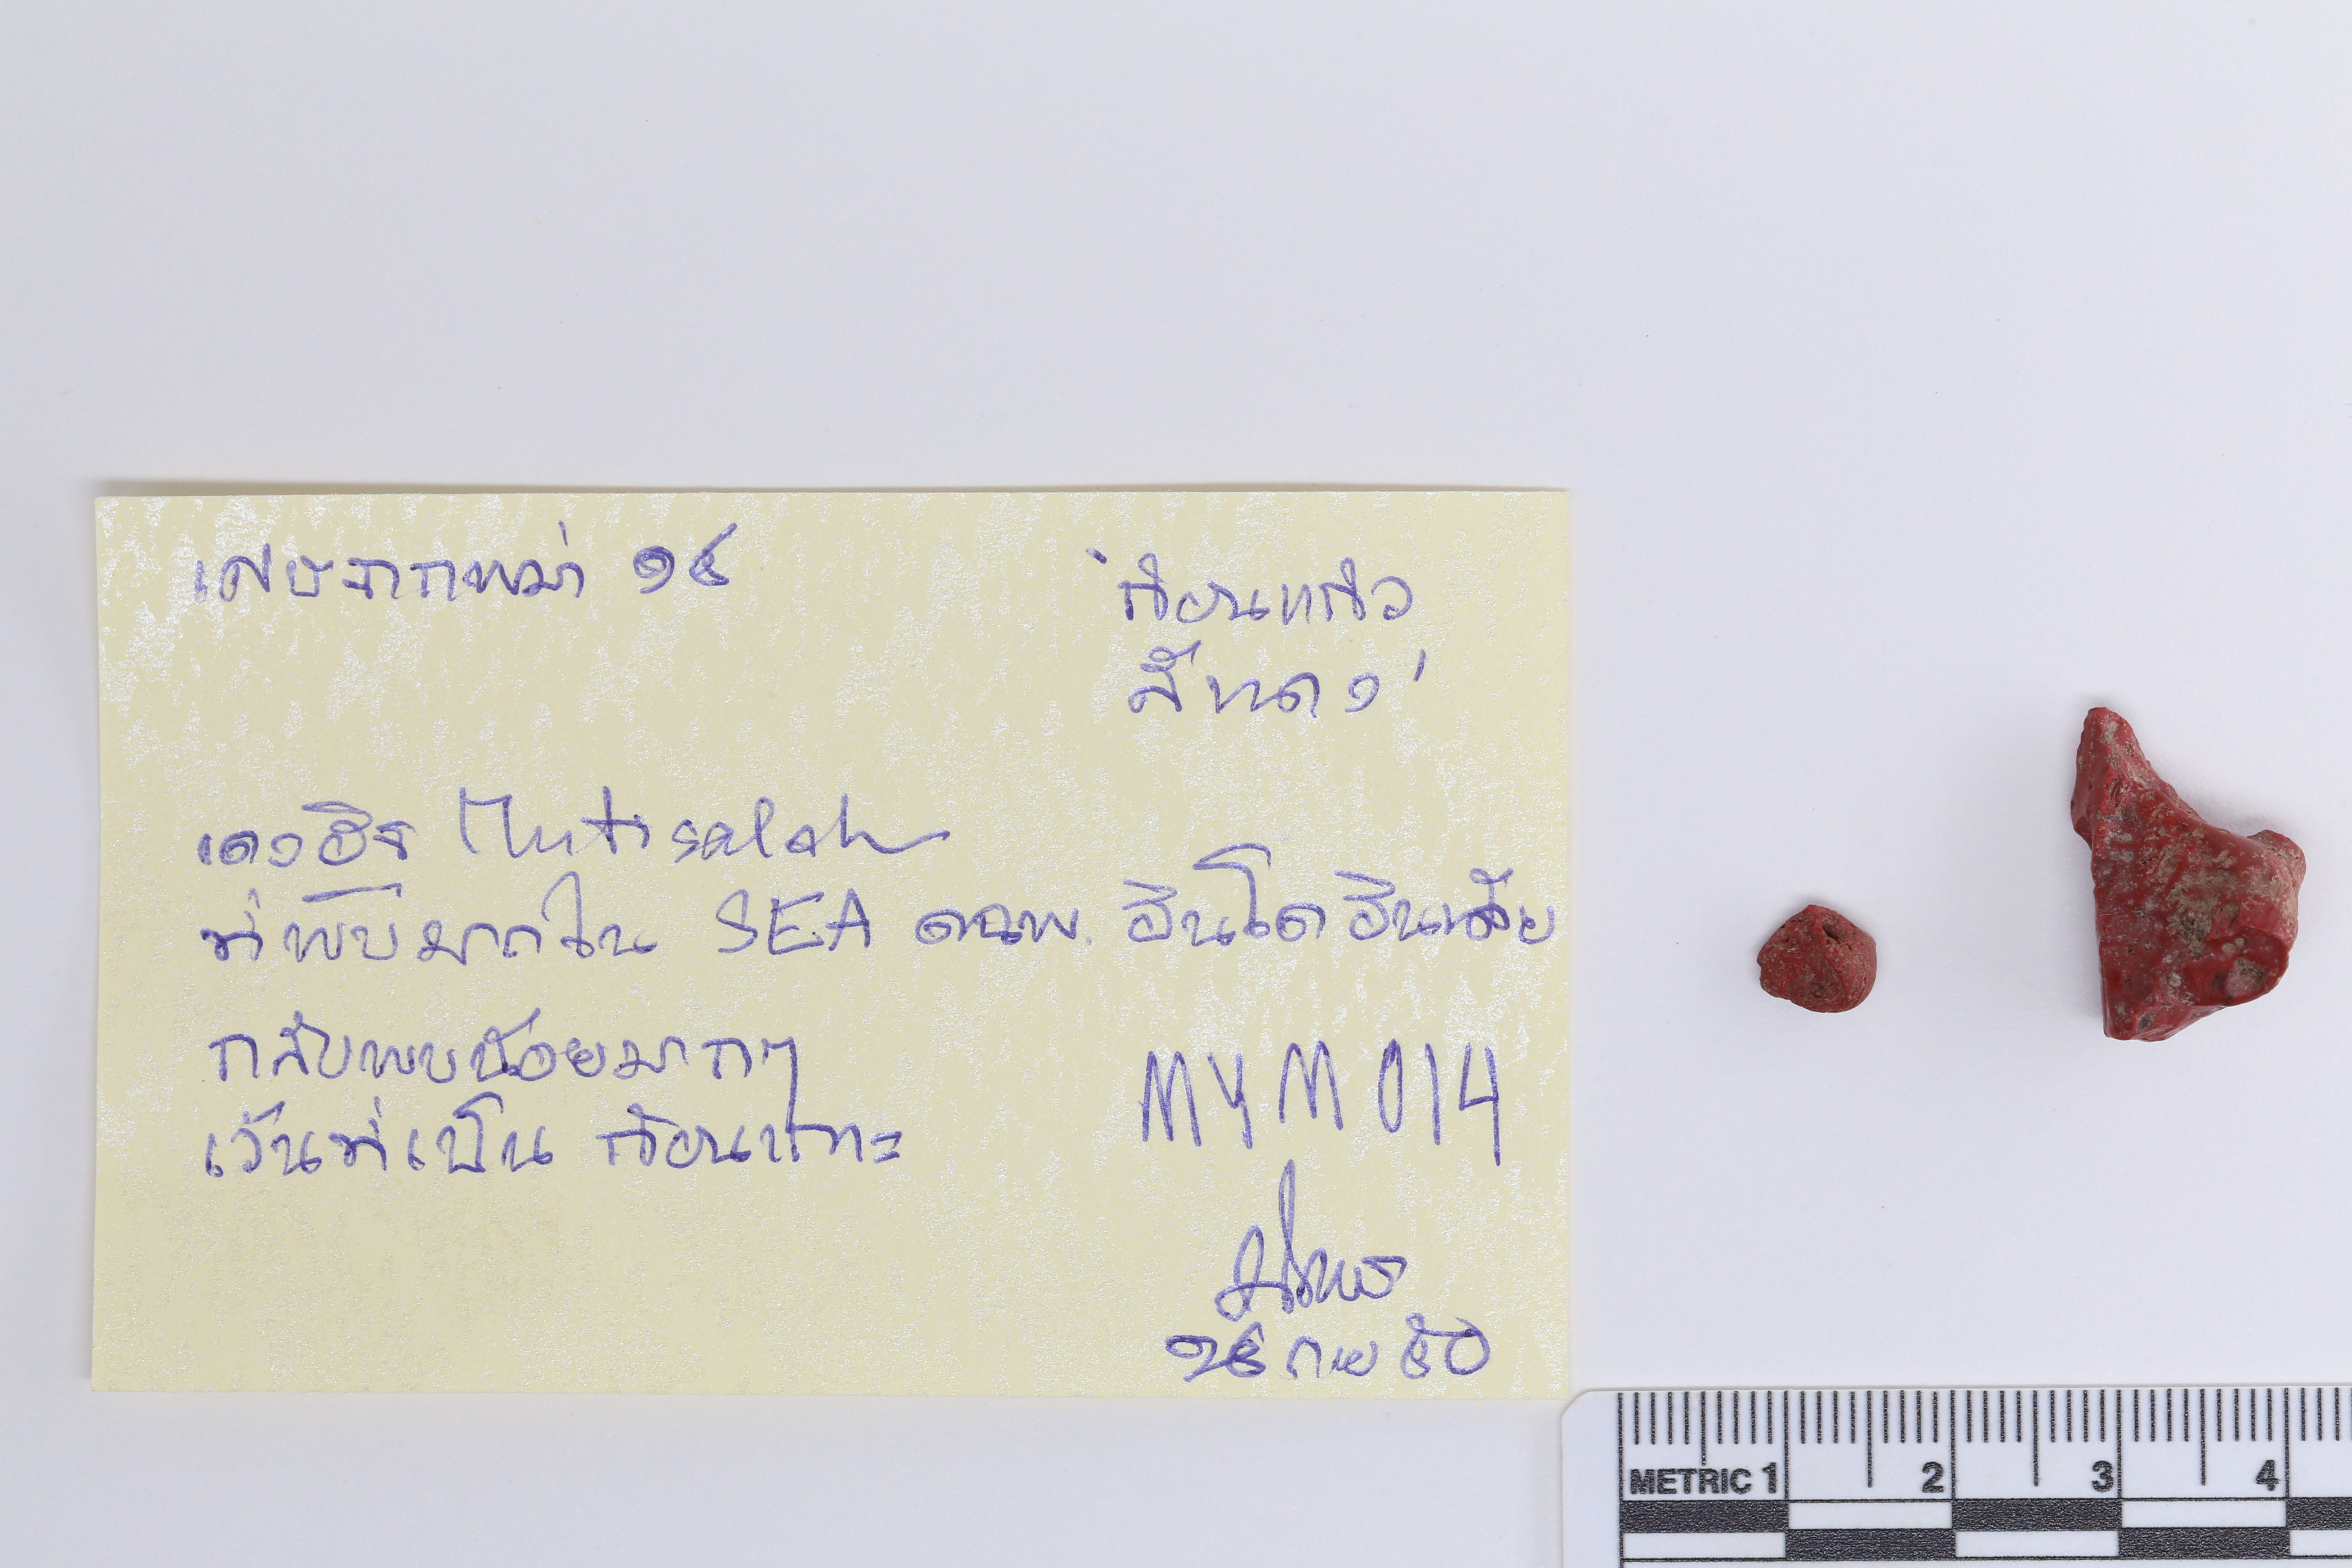 เศษจากพม่า ๑๔
"ก้อนแก้ว
สีแดง"
แดงอิฐ Mutisalah
ที่พบมากใน SEA ดฉพ. อินโด อินเดีย
กลับพบน้อยมากๆ
เว้นที่เป็น ก้อนแก้ว
MYM 014
๒๕ กย ๕๐
METRIC 1 2 3 4